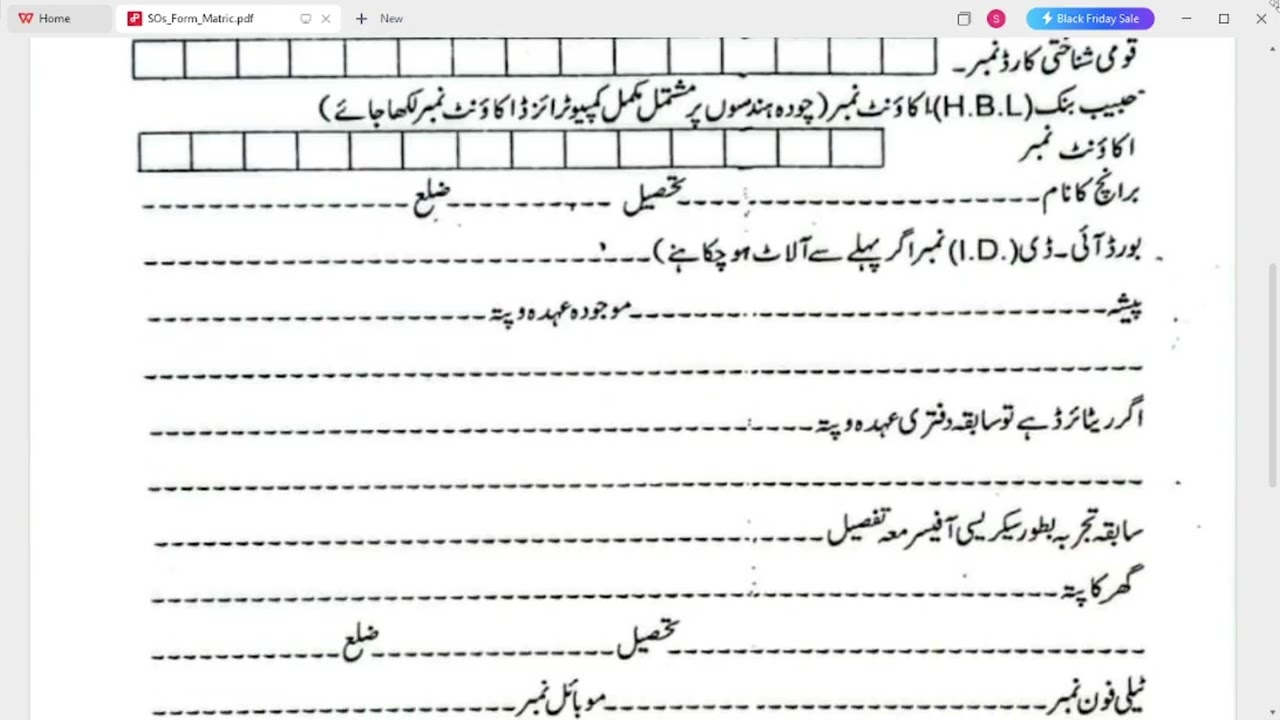 Home SOs_Form_Matric.pdf New S Black Friday Sale
قومی شناختی کارڈ نمبر۔
حبیب بنک (H.B.L) اکاؤنٹ نمبر (چودہ ہندسوں پر مشتمل مکمل کمپیوٹرائزڈ اکاؤنٹ نمبر لکھا جائے)
اکاؤنٹ نمبر
برانچ کا نام ---------- تحصیل ---------- ضلع ----------
بورڈ آئی۔ڈی (I.D.) نمبر اگر پہلے سے آلاٹ ہو چکا ہئے) ----------
پیشہ ---------- موجودہ عہدہ و پتہ ----------
اگر ریٹائرڈ ہے تو سابقہ دفتری عہدہ و پتہ ----------
سابقہ تجربہ بطور سیکریسی آفیسر معہ تفصیل ----------
گھر کا پتہ ----------
---------- تحصیل ---------- ضلع ----------
ٹیلی فون نمبر ---------- موبائل نمبر ----------